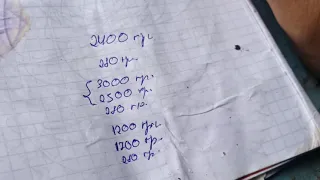 2400 гр.
280 гр.
3000 гр.
2500 гр.
280 гр.
1200 гр.
1200 гр.
280 гр.